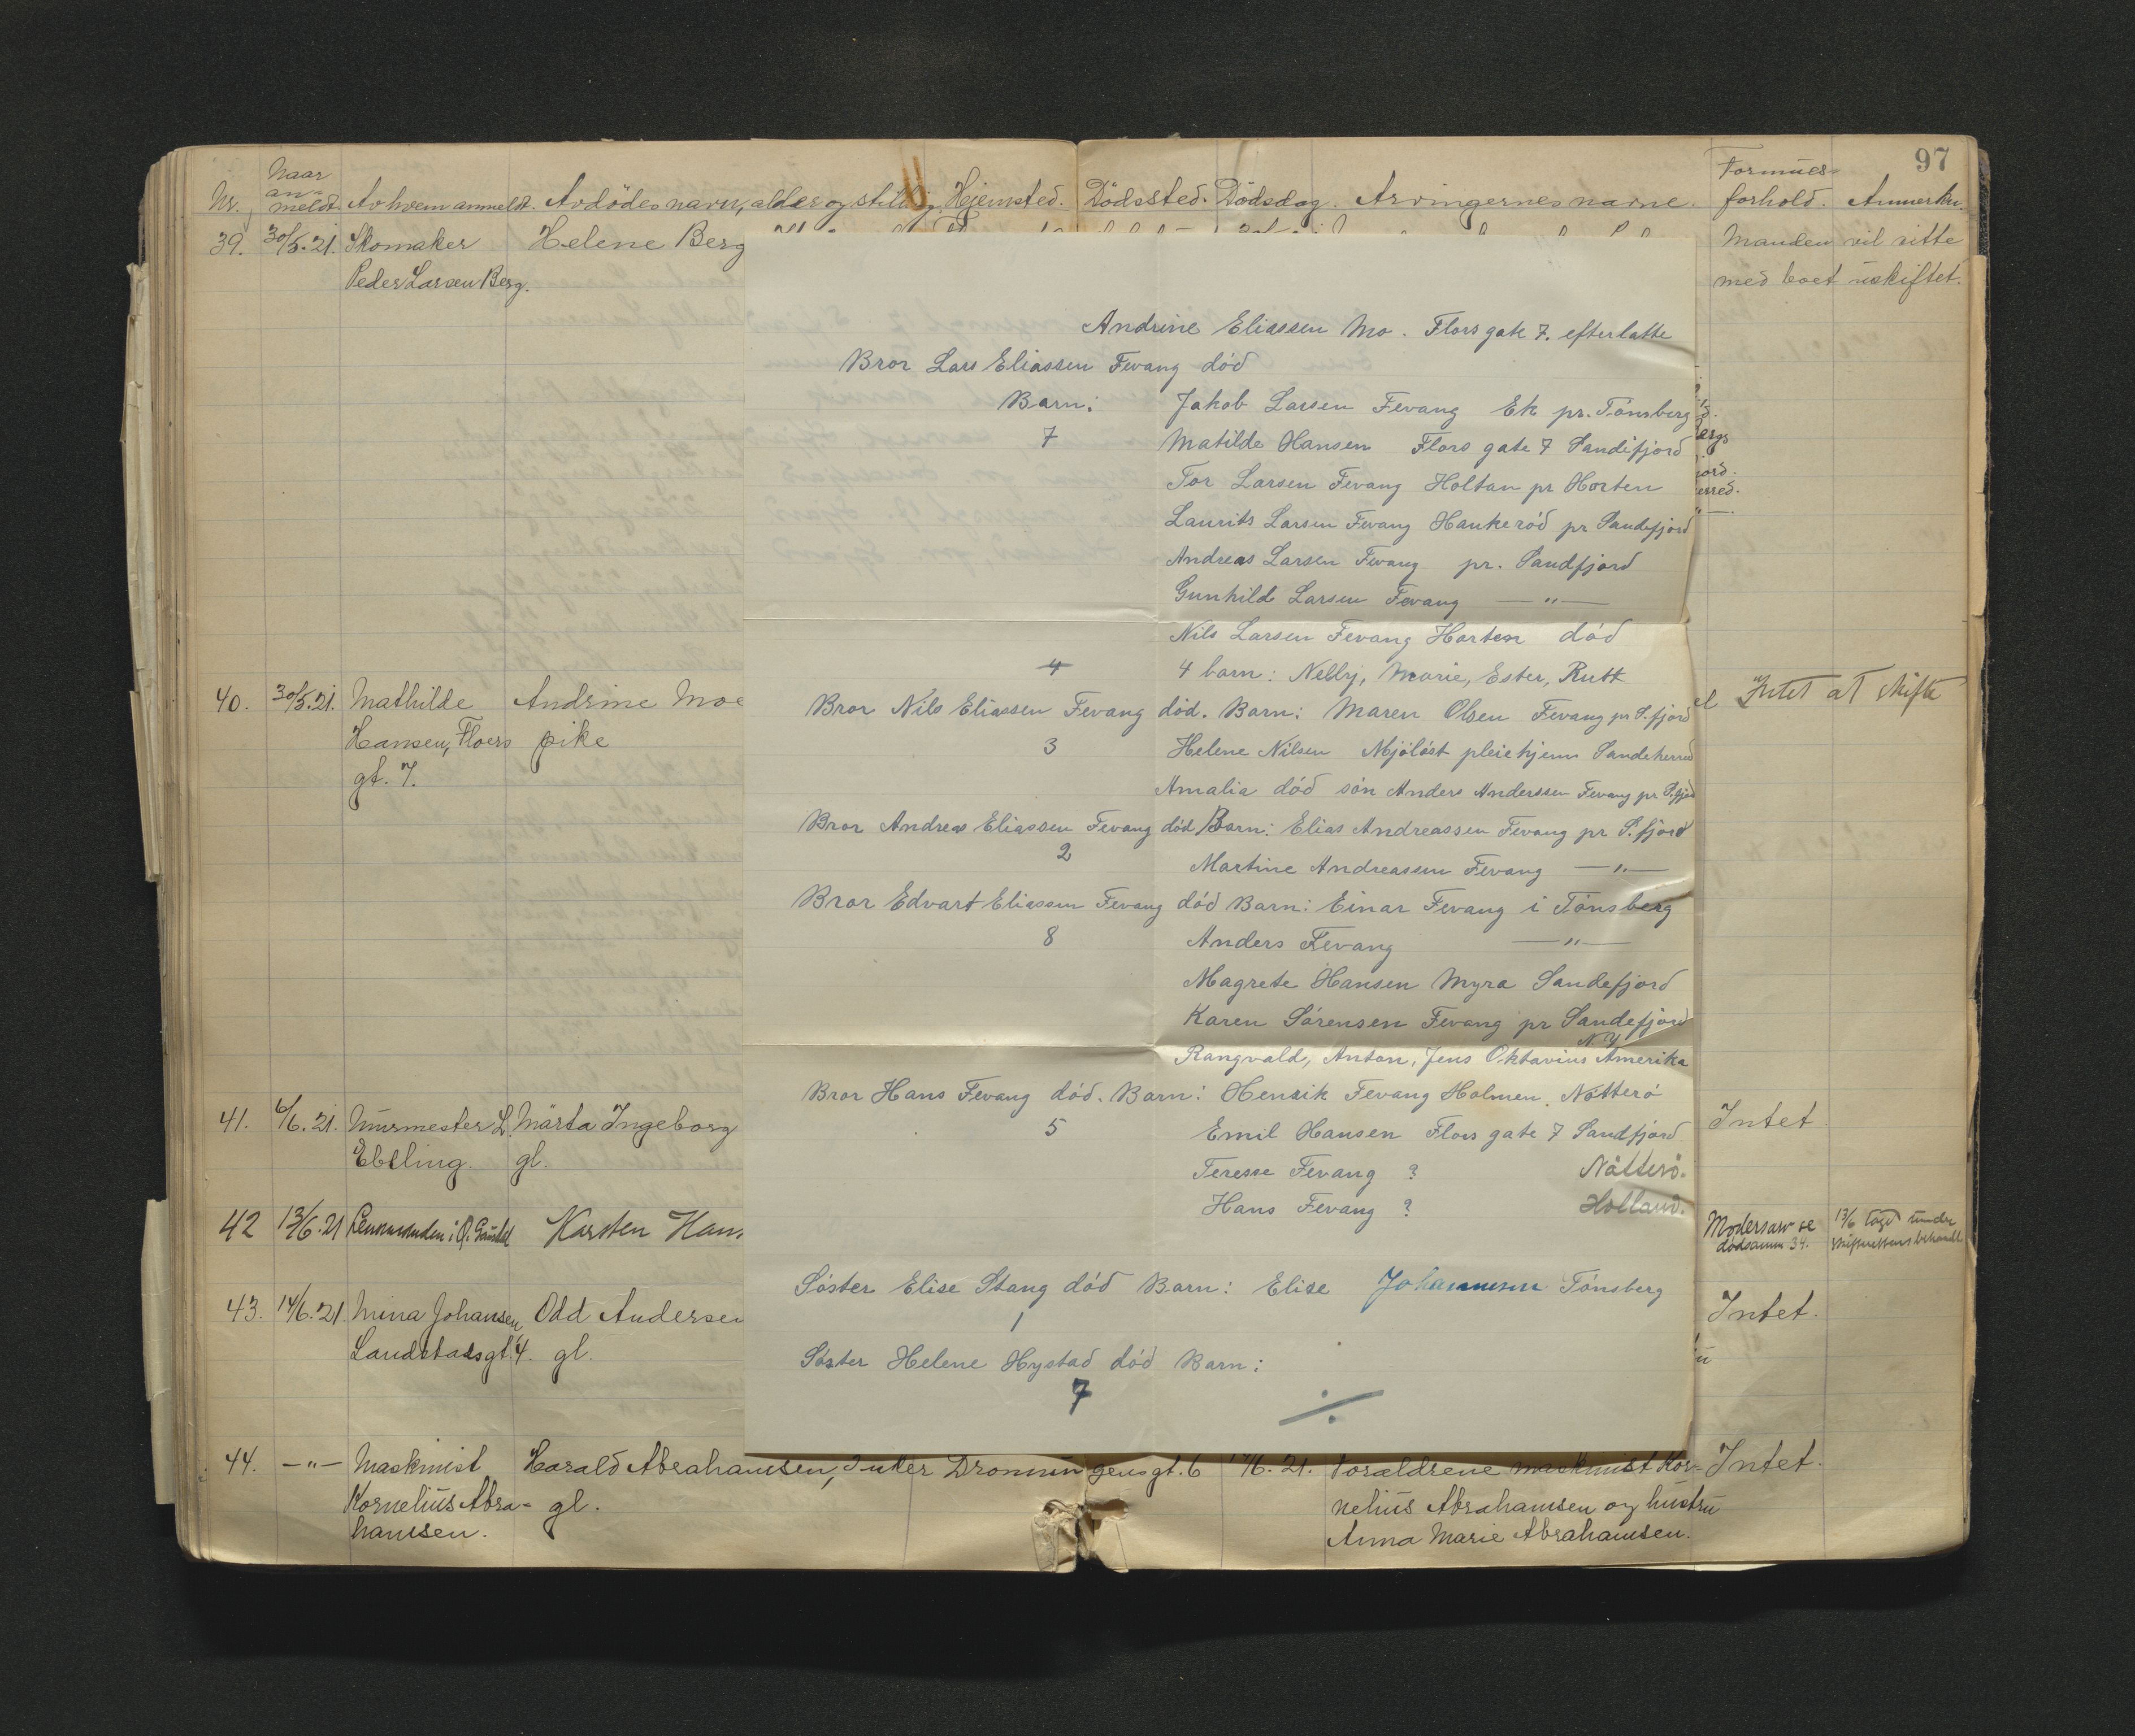 97
Nr. Naar an- meldt. Av hvem anmeldt. Avdödes navn, alder og stilling Hjemsted. Dödssted. Dödsdag. Arvingernes navne. Formues- forhold. Anmerkn.
39. 30/5.21. Skomaker Helene Berg Manden vil sitte
Peder Larsen Berg. med boet uskiftet.
Andrine Eliassen Mo. Flors gate 7. efterlatte
Bror Lars Eliassen Fevang död
Barn: Jakob Larsen Fevang Ek pr. Tönsberg
7 Matilde Hansen Flors gate 7 Sandifjord
Tor Larsen Fevang Holtan pr Horten
Laurits Larsen Fevang Haukeröd pr Sandefjord
Andreas Larsen Fevang pr. Sandfjord
Gunhild Larsen Fevang —"—
Nils Larsen Fevang Horten död
4 4 barn: Nelly, Marie, Ester, Rutt
Bror Nils Eliassen Fevang död. Barn: Maren Olsen Fevang pr S.fjord
3 Helene Nilsen Mjölöst pleiehjem Sandeherred
Amalia död sön Anders Anderssen Fevang pr S.fjord
Bror Andreas Eliassen Fevang död Barn: Elias Andreassen Fevang pr S.fjord
2 Martine Andreassen Fevang —"—
Bror Edvart Eliassen Fevang död Barn: Einar Fevang i Tönsberg
8 Anders Fevang —"—
Magrete Hansen Myra Sandefjord
Karen Sörensen Fevang pr Sandefjord
N.Y
Rangvald, Anton, Jens Oktavius Amerika
Bror Hans Fevang död. Barn: Henrik Fevang Holmen, Nötterö
5 Emil Hansen Flors gate 7 Sandfjord
Teresse Fevang ? Nötterö.
Hans Fevang ? Holland.
Söster Elise Stang död Barn: Elise Johannesen Tönsberg
1
Söster Helene Hystad död Barn:
7 ÷
40. 30/5.21. Mathilde Andrine Moe Intet at skifte
Hansen, Floers pike
gt. 7.
41. 6/6.21. Murmester L. Märta Ingeborg Intet.
Ebeling. gl.
42 13/6.21 Karsten Hans Modersarv se 13/6 tagd under
dødsanm 34. skifterettens behandl.
43. 14/6.21. Mina Johansen, Odd Andersen Intet.
Landstadsgt. 4. gl.
44. —"— Maskinist Harald Abrahamsen, Inter Dronningensgt. 6 14/6.21. Forældrene maskinist Kor- Intet.
Kornelius Abra- gl. nelius Abrahamsen og hustru
hamsen. Anna Marie Abrahamsen.